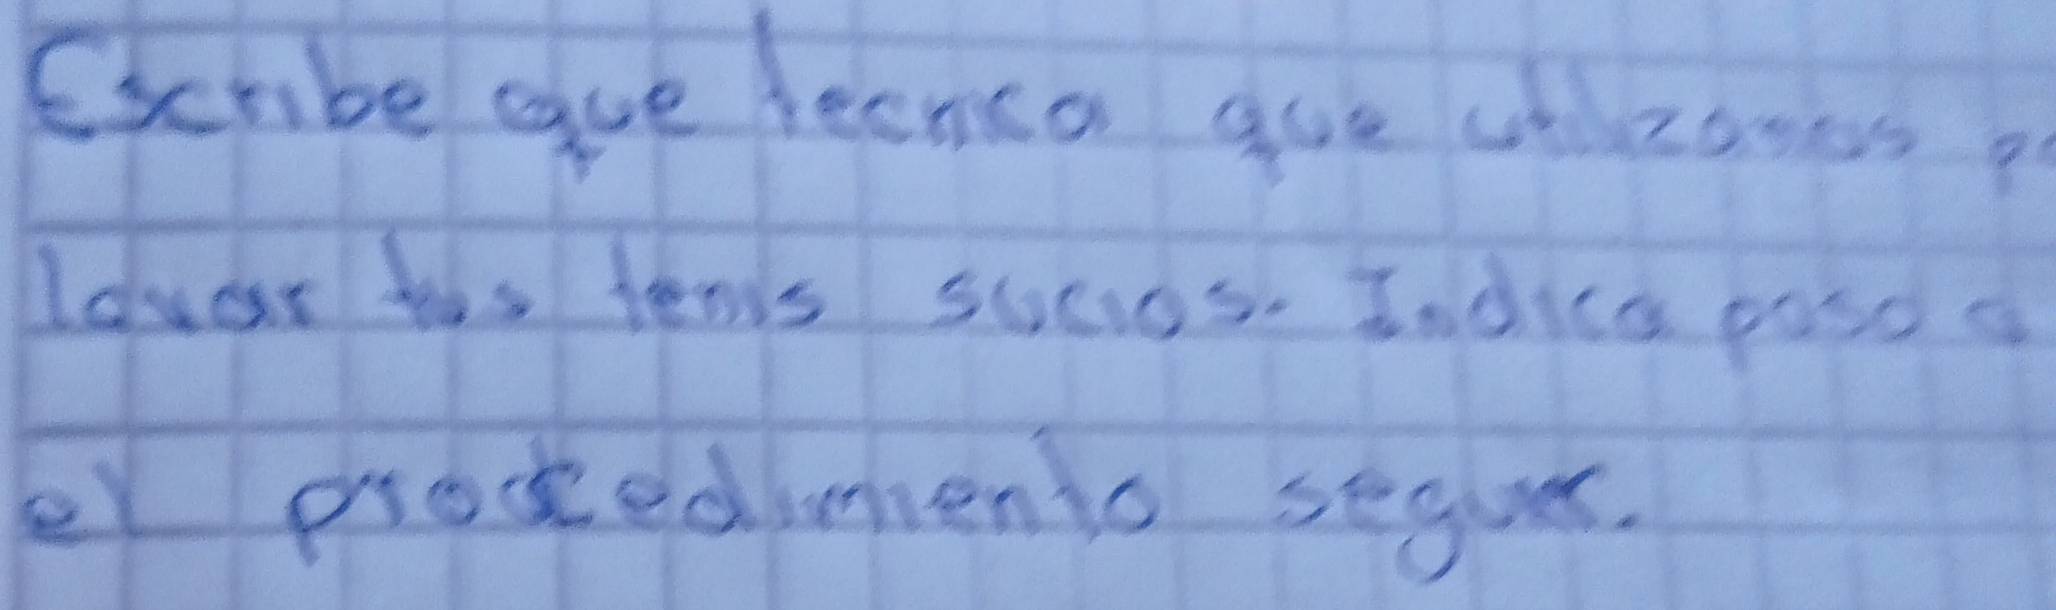 Escribe que tecnica que utilizamos
lavar tus tenis sucios. Indica paso a
el procedimiento seguir.